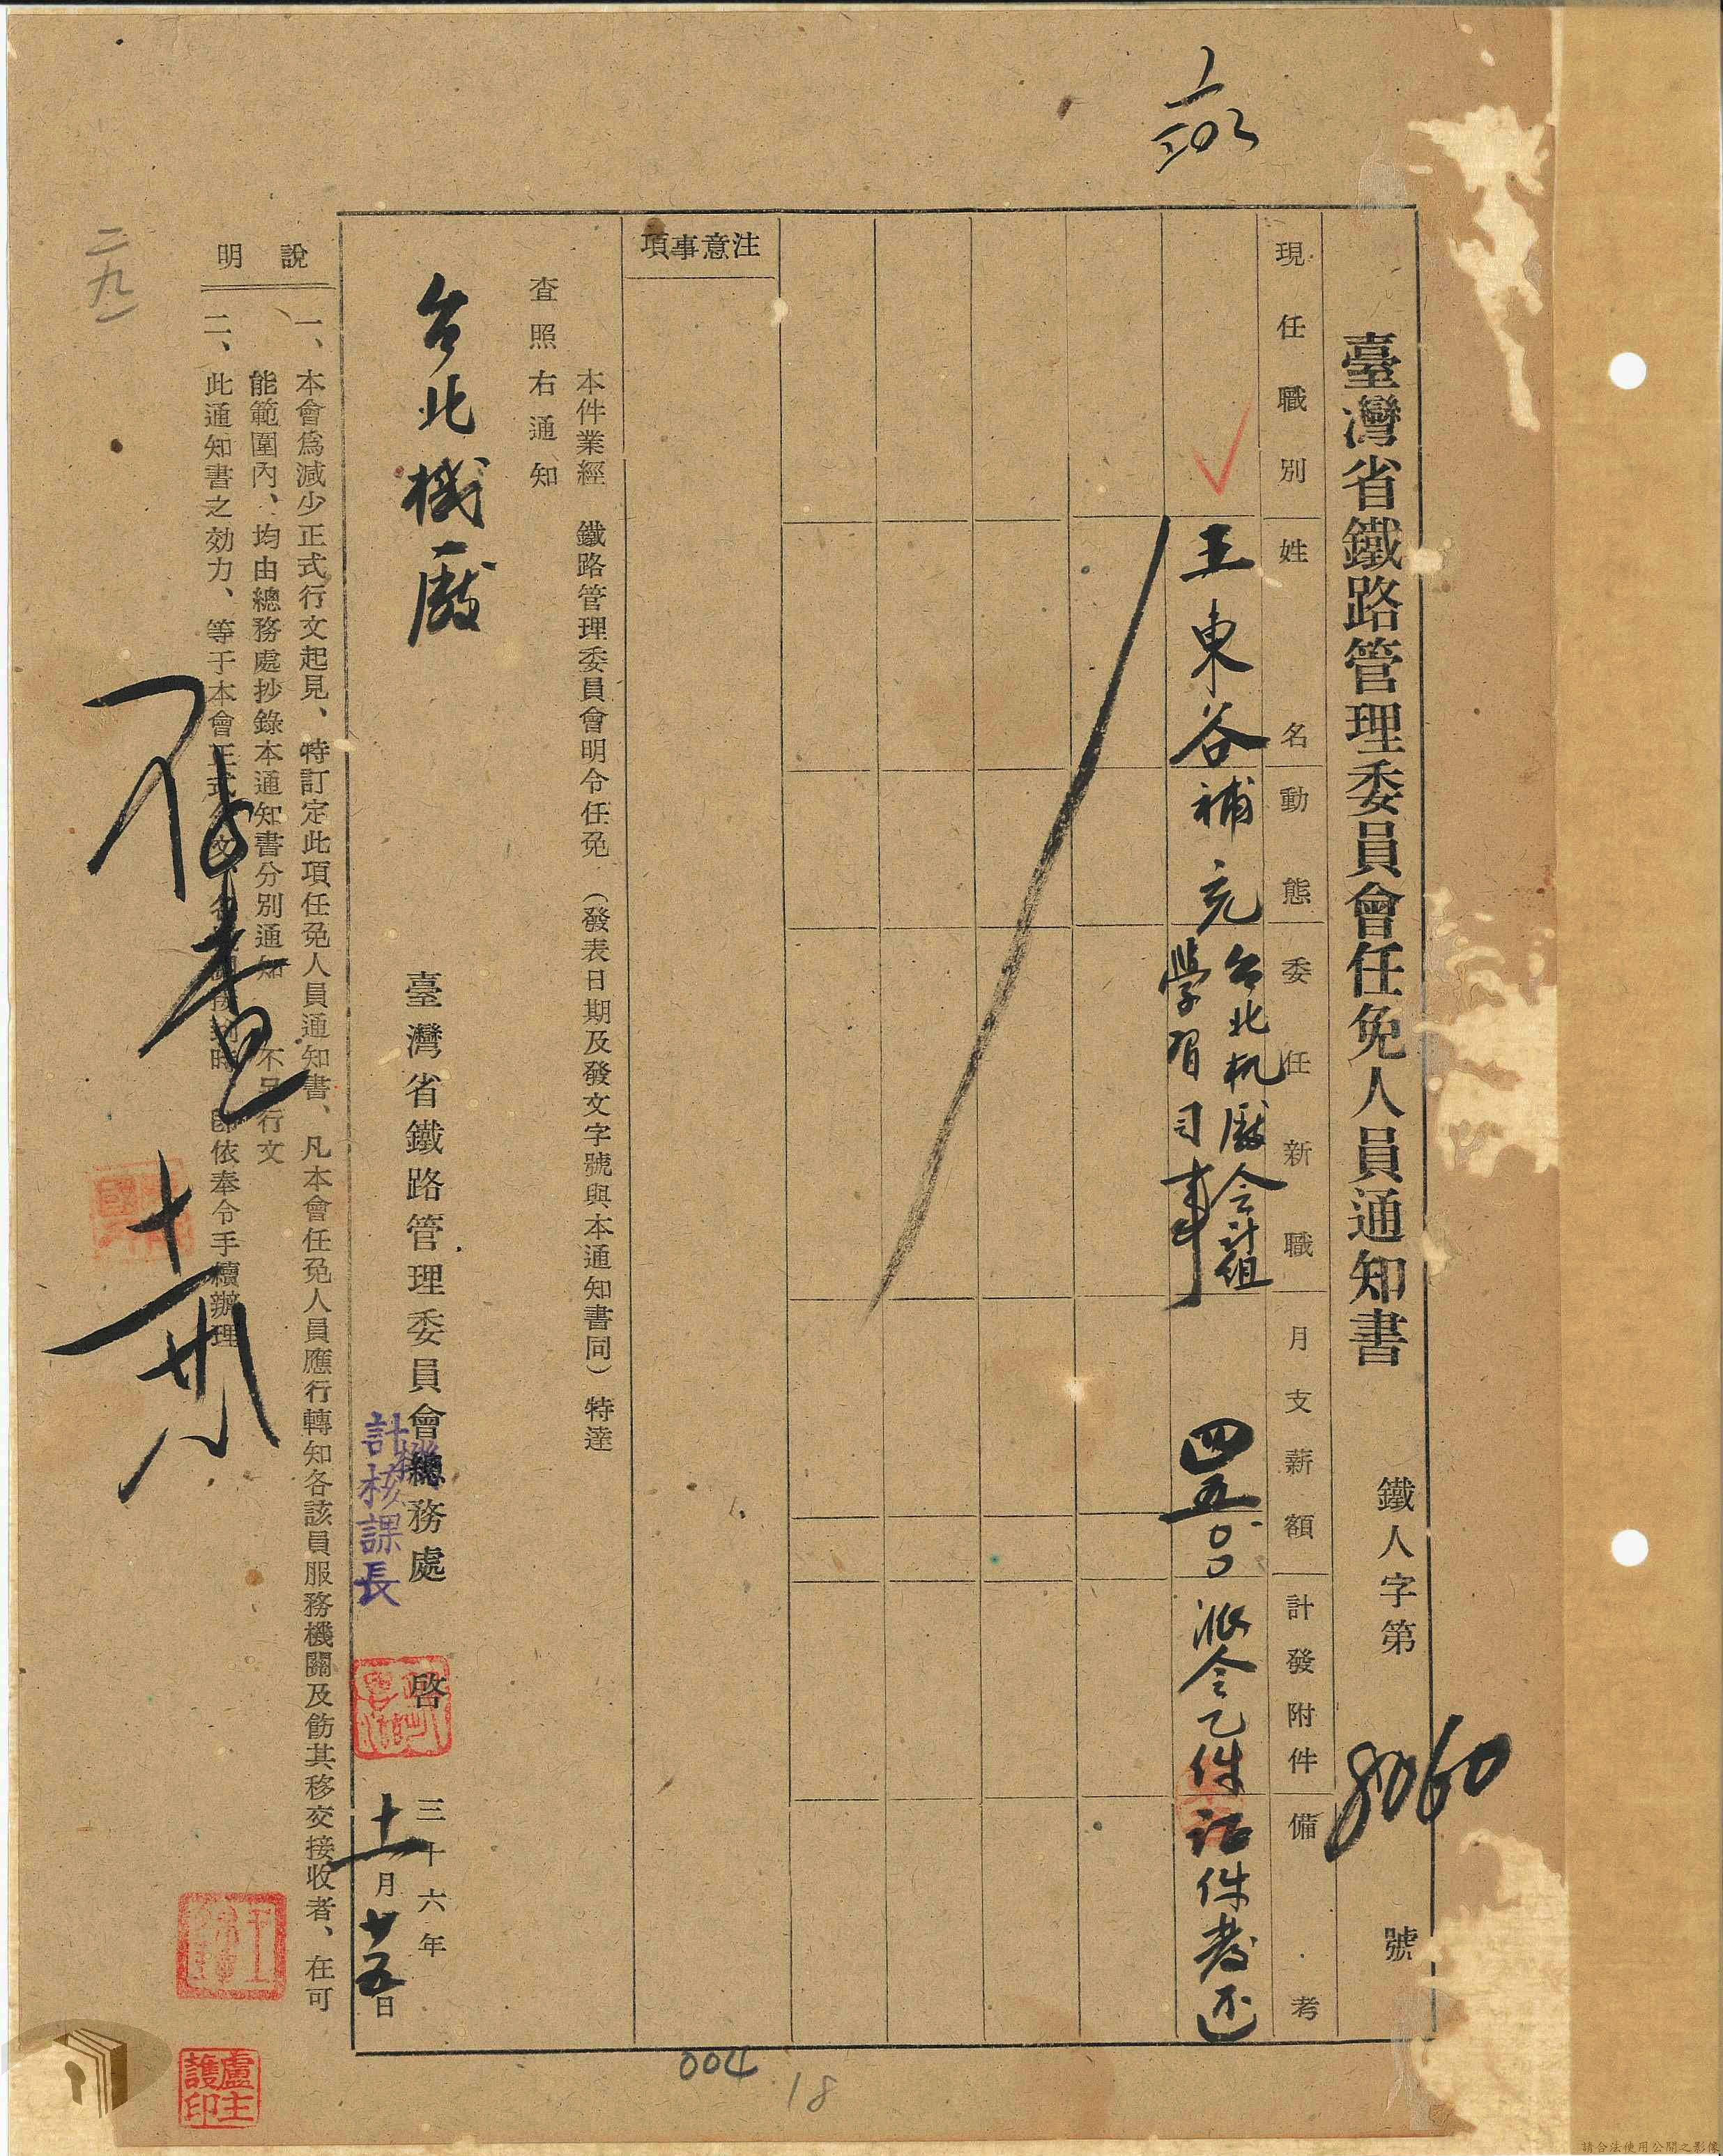 臺灣省鐵路管理委員會任免人員通知書 鐵人字第 8060 號
現任職別 姓名 動態 委任新職 月支薪額 計發附件 備考
王東谷 補充 台北机廠会計組 學習司事 四五〇〇 派令乙件 証件發还
注意事項
本件業經 鐵路管理委員會明令任免 (發表日期及發文字號與本通知書同) 特達
查照右通知
台北機廠
臺灣省鐵路管理委員會總務處 啓
計核課長
三十六年
十一月廿五日
說明
一、本會爲減少正式行文起見、特訂定此項任免人員通知書、凡本會任免人員應行轉知各該員服務機關及飭其移交接收者、在可
能範圍內、均由總務處抄錄本通知書分別通知 不另行文
二、此通知書之効力、等于本會正式 時 卽依奉令手續辦理
存查
二九
盧主護印
004
18
請合法使用公開之影像